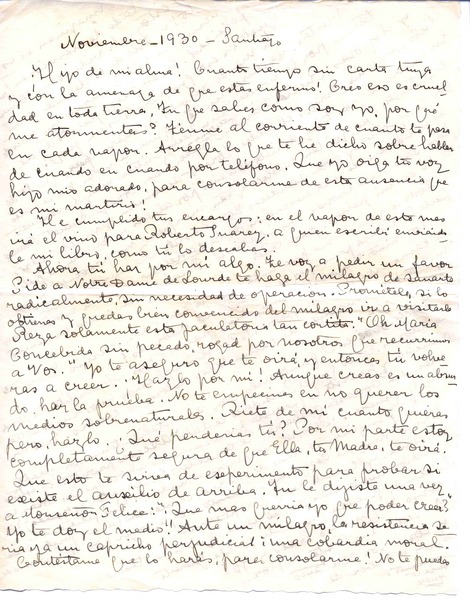 Noviembre - 1930 - Santiago
¡Hijo de mi alma! Cuanto tiempo sin carta tuya
y con la amenaza de que estas enfermo! Creo eso es cruel
dad en toda tierra. Tu que sabes como soy yo, por qué
me atormentas? Tenme al corriente de cuanto te pase
en cada vapor. Arregla lo que te he dicho sobre hablar
de cuando en cuando por teléfono. Que yo oiga tu voz
hijo mio adorado, para consolarme de esta ausencia que
es mi martirio!
He cumplido tus encargos: en el vapor de este mes
irá el vino para Roberto Suarez, a quien escribí enviándo
le mi libro, como tú lo deseabas.
Ahora tú haz por mí algo. Te voy a pedir un favor
Pide a Notre Dame de Lourde te haga el milagro de sanarte
radicalmente, sin necesidad de operacion. Prométele, si lo
obtienes y quedas bien convencido del milagro ir a visitarla
Reza solamente esta jaculatoria tan cortita. "Oh María
Concebida sin pecado, rogad por nosotros que recurrimos
a Vos." Yo te aseguro que te oirá, y entonces tú volve
ras a creer... Hazlo por mí! Aunque creas es un absur
do, haz la prueba. No te empecines en no querer los
medios sobrenaturales. Ríete de mí cuanto quieras
pero, hazlo... Qué perderias tú? Por mi parte estoy
completamente segura de que Ella, tu Madre, te oirá.
Que esto te sirva de esperimento para probar si
existe el auxilio de arriba. Tu le dijiste una vez
a Monseñor Felice: "Que mas querria yo que poder creer?
Yo te doy el medio!! Ante un milagro, la resistencia se
ria ya un capricho perjudicial i una cobardia moral.
Contéstame que lo harás, para consolarme! No te puedo